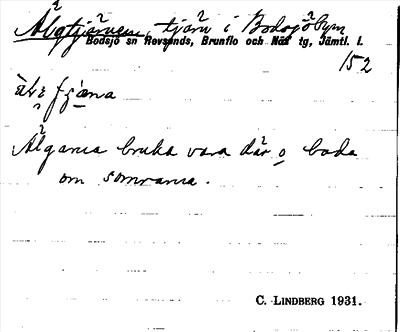 Älgtjärnen, tjärn i Bodsjöbyn
Bodsjö sn Revsunds, Brunflo och Näs tg, Jämtl. l.
152
Älgarna bruka vara där o bada
om somrarna.
C. LINDBERG 1931.